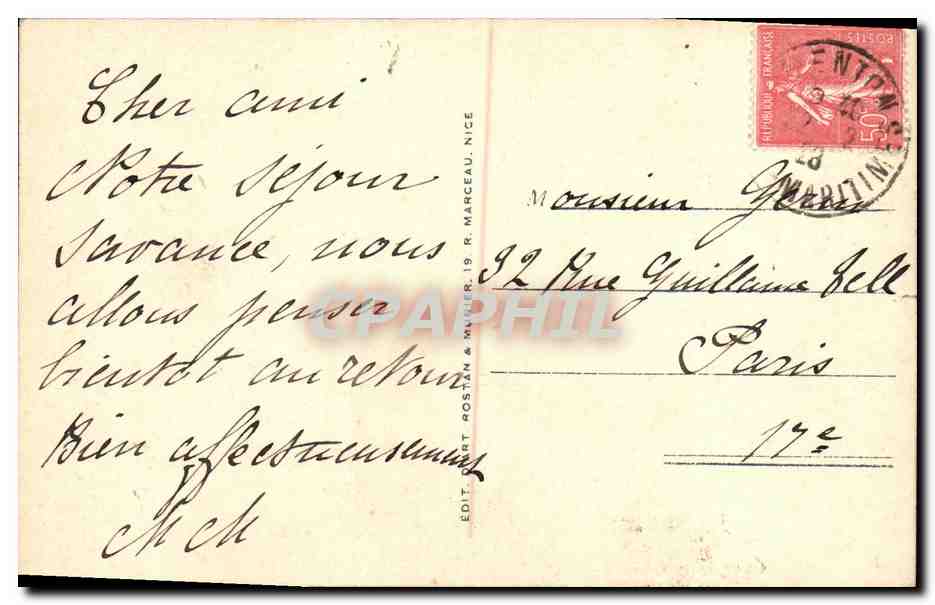 Cher ami
Notre séjour
savance, nous
allons penser
bientot au retour
Bien affectueusement
MM
ÉDIT. D'ART ROSTAN & MUNIER. 19. R. MARCEAU. NICE
POSTES
RÉPUBLIQUE FRANÇAISE
50c
MENTON
28
MARITIMES
Monsieur
32 Rue Guillaume Tell
Paris
17e
CPAPHIL